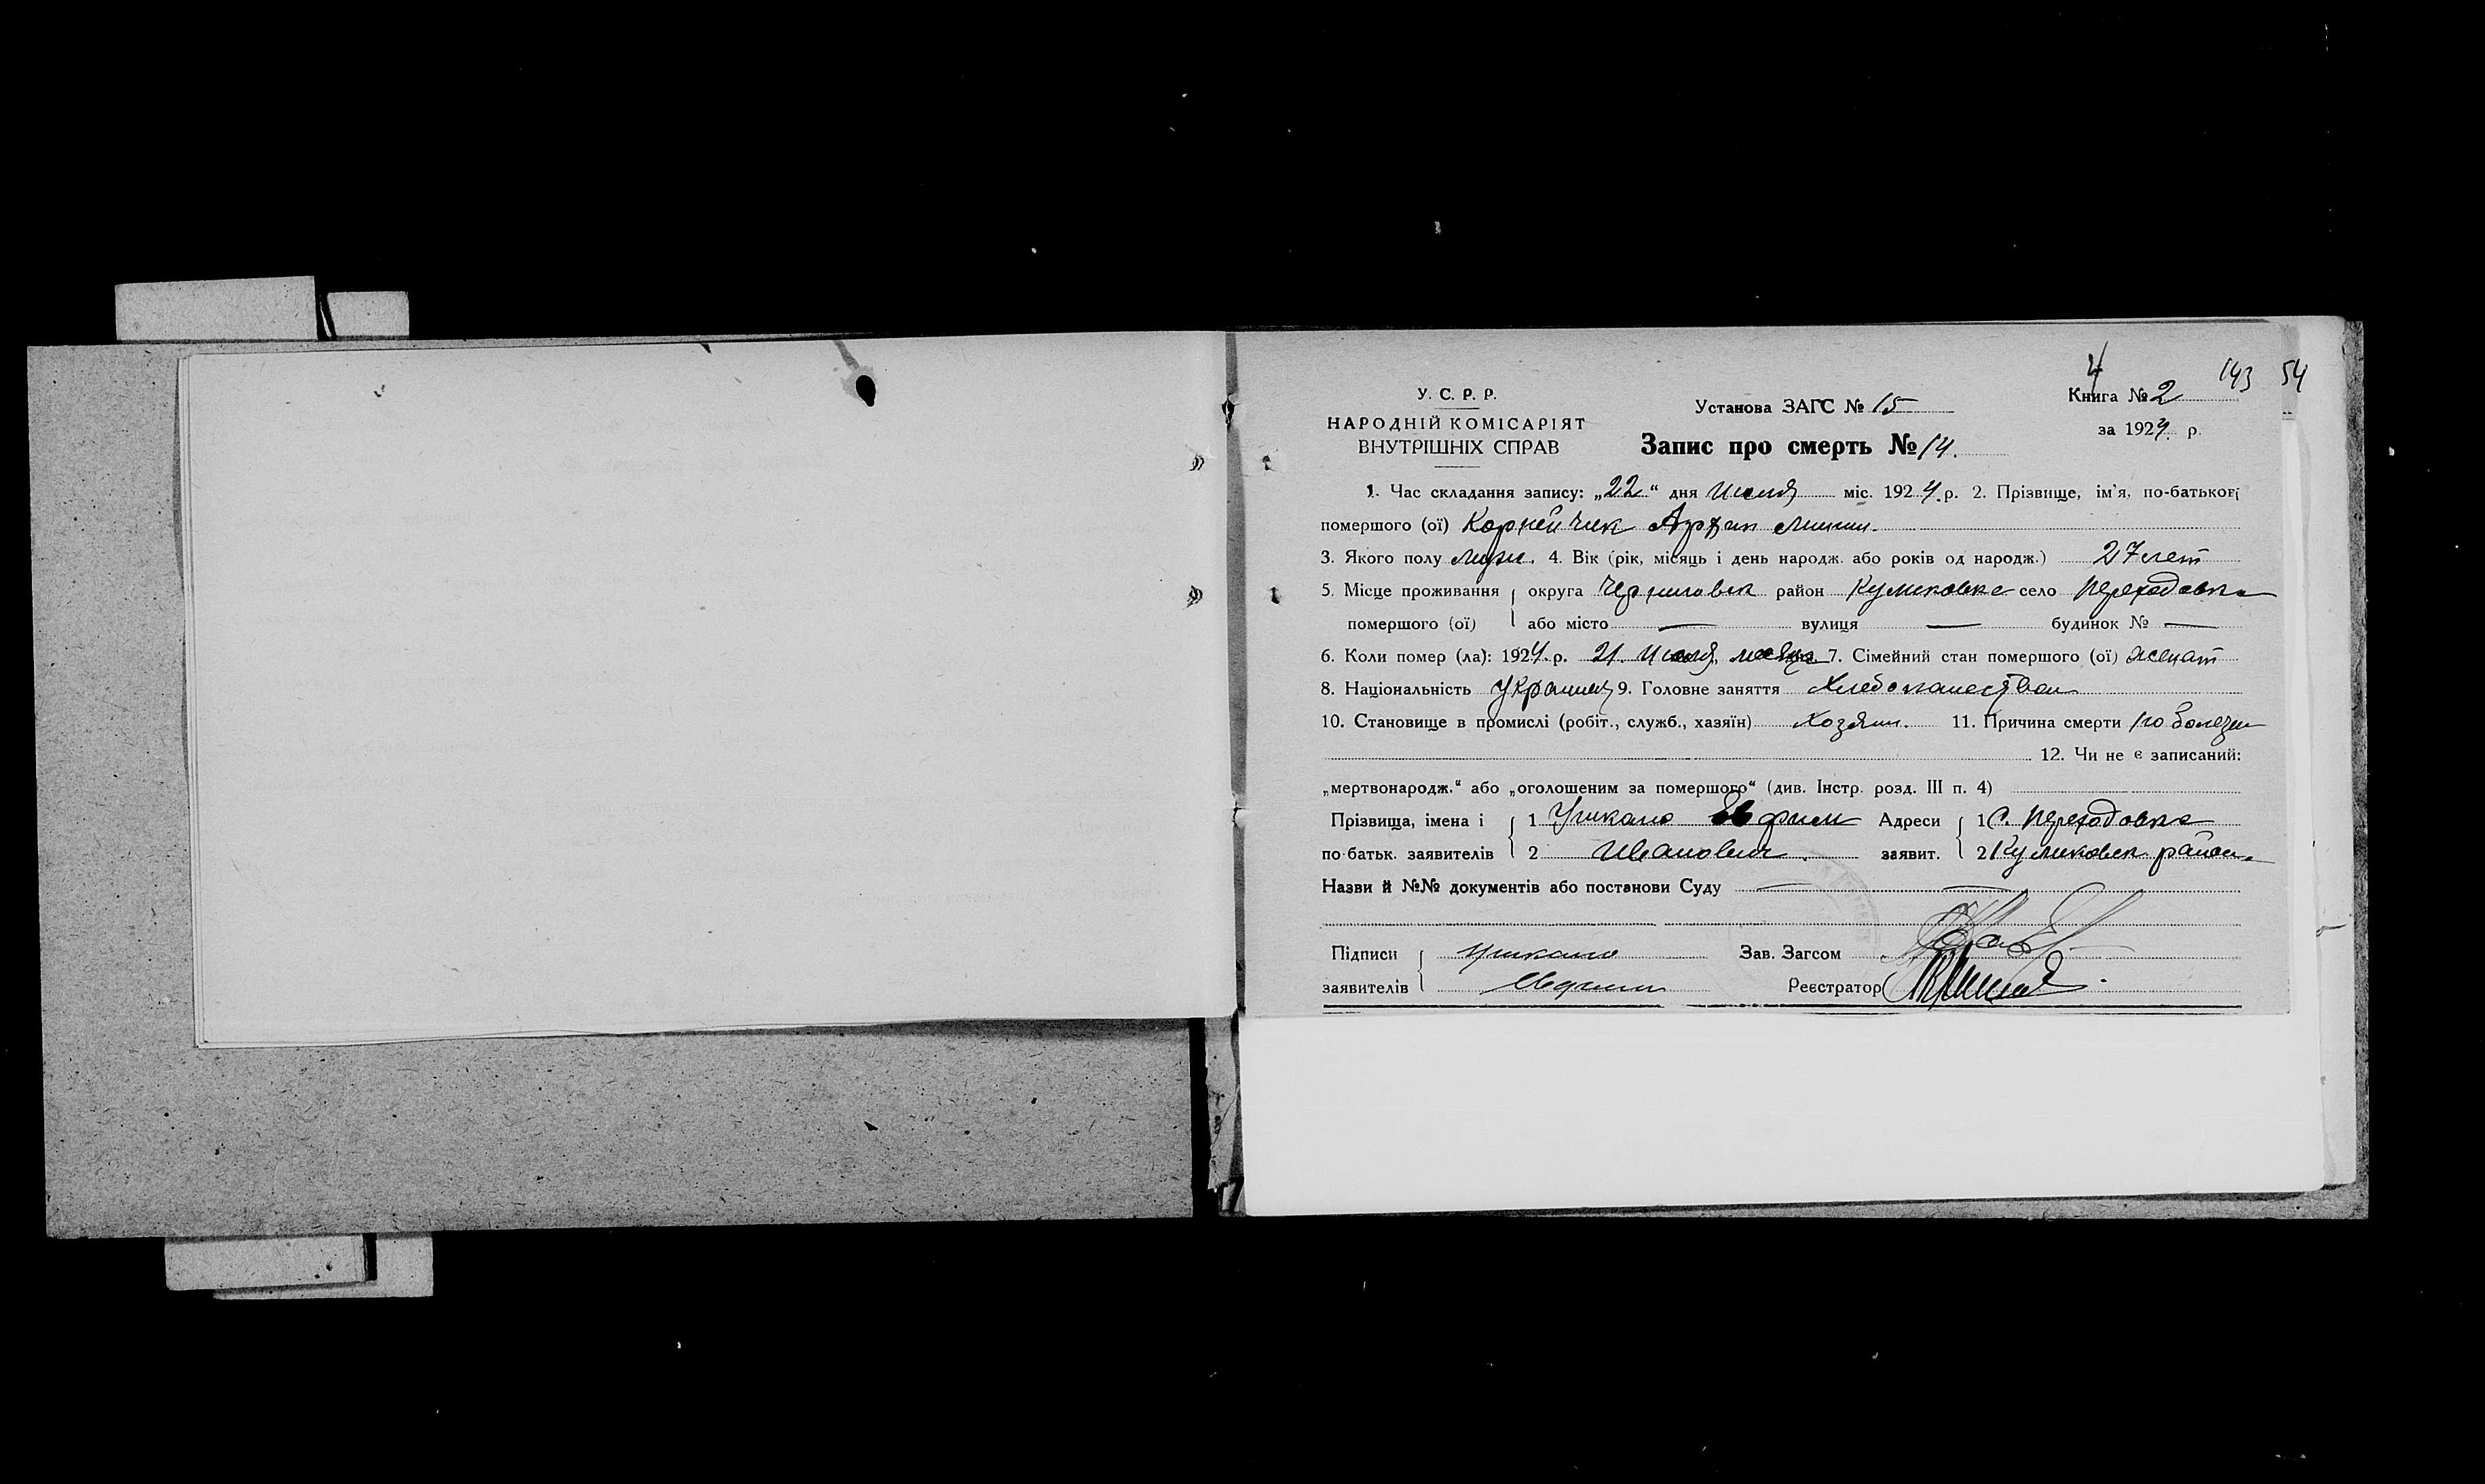 4
143 54
У. С. Р. Р.
НАРОДНІЙ КОМІСАРІЯТ
ВНУТРІШНІХ СПРАВ
Установа ЗАГС № 15
Запис про смерть № 14.
Книга № 2
за 1924 р.
1. Час складання запису: „22“ дня Июля міс. 1924 р. 2. Прізвище, ім'я, по-батькові
помершого (ої) Корнейчик
3. Якого полу муж. 4. Вік (рік, місяць і день народж. або років од народж.) 27 лет
5. Місце проживання округа Черниговск район Куликовка село Переходовка
помершого (ої) або місто — вулиця — будинок № —
6. Коли помер (ла): 1924 р. 21 Июля, месяца 7. Сімейний стан помершого (ої) женат
8. Національність Украинец 9. Головне заняття Хлебопашество
10. Становище в промислі (робіт., служб., хазяїн) Хозяин. 11. Причина смерти по болезни
12. Чи не є записаний:
„мертвонародж.“ або „оголошеним за помершого“ (див. Інстр. розд. III п. 4)
Прізвища, імена і 1 Ефим Адреси 1 С. Переходовка
по-батьк. заявителів 2 Иванович заявит. 2 Куликовск района
Назви й №№ документів або постанови Суду —
Підписи Зав. Загсом
заявителів Реєстратор